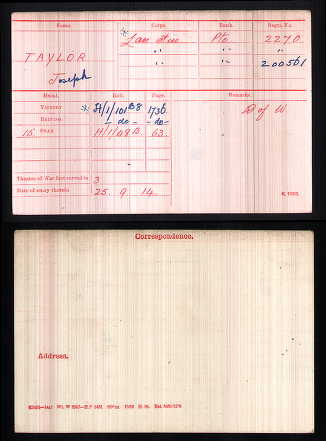 Name. Corps. Rank. Regtl. No.
TAYLOR Lan Fus Pte 2270
" " "
Joseph " " 200561
Medal. Roll. Page. Remarks.
VICTORY H/1/101 B8 1736 D of W.
BRITISH -do- -do-
15 STAR H/1/09 B. 63.
Theatre of War first served in 3
Date of entry therein 25. 9. 14.
K. 1380.
Correspondence.
Address.